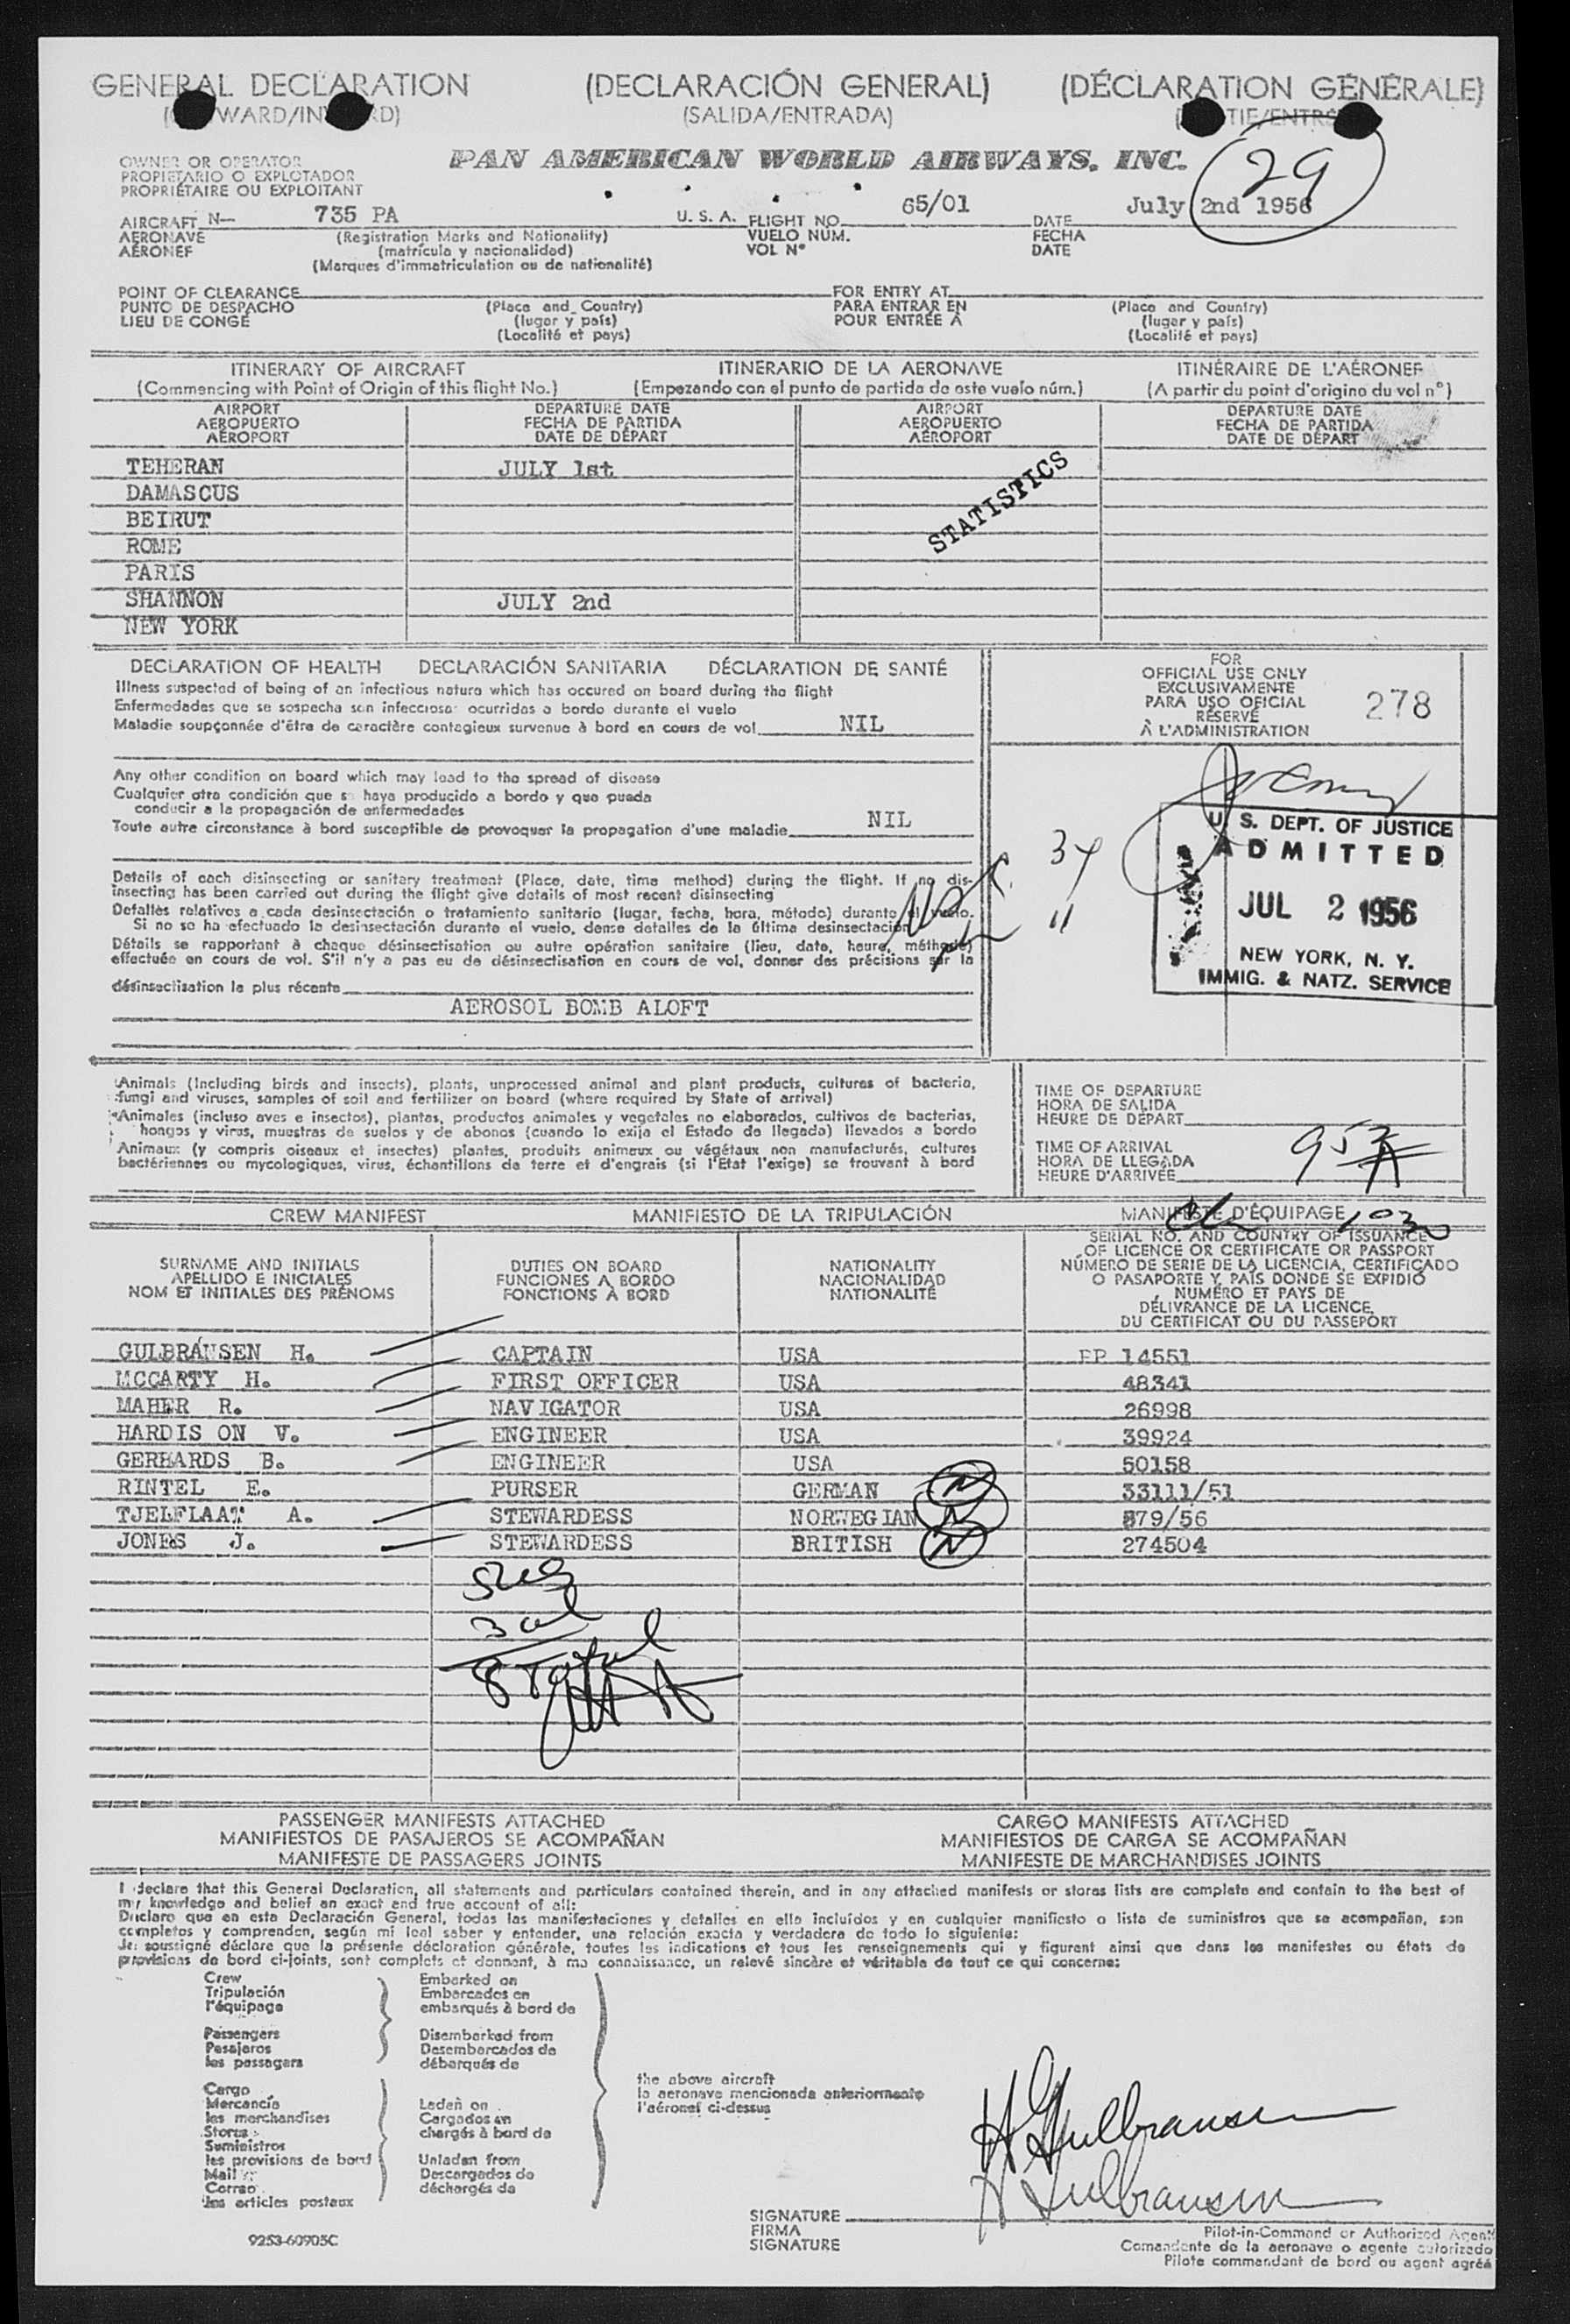 GENERAL DECLARATION (DECLARACIÓN GENERAL) (DÉCLARATION GÉNÉRALE)
(SALIDA/ENTRADA)
OWNER OR OPERATOR
PROPIETARIO O EXPLOTADOR
PROPRIÉTAIRE OU EXPLOITANT
PAN AMERICAN WORLD AIRWAYS, INC.
29
AIRCRAFT N— 735 PA U. S. A. FLIGHT NO. 65/01 DATE July 2nd 1956
AERONAVE (Registration Marks and Nationality) VUELO NÚM. FECHA
AÉRONEF (matrícula y nacionalidad) VOL N° DATE
(Marques d'immatriculation ou de nationalité)
POINT OF CLEARANCE FOR ENTRY AT
PUNTO DE DESPACHO (Place and Country) PARA ENTRAR EN (Place and Country)
LIEU DE CONGÉ (lugar y país) POUR ENTRÉE À (lugar y país)
(Localité et pays) (Localité et pays)
ITINERARY OF AIRCRAFT ITINERARIO DE LA AERONAVE ITINÉRAIRE DE L'AÉRONEF
(Commencing with Point of Origin of this flight No.) (Empezando con el punto de partida de este vuelo núm.) (A partir du point d'origine du vol n°)
AIRPORT DEPARTURE DATE AIRPORT DEPARTURE DATE
AEROPUERTO FECHA DE PARTIDA AEROPUERTO FECHA DE PARTIDA
AÉROPORT DATE DE DÉPART AÉROPORT DATE DE DÉPART
TEHERAN JULY 1st
DAMASCUS
BEIRUT
ROME
PARIS
SHANNON JULY 2nd
NEW YORK
STATISTICS
DECLARATION OF HEALTH DECLARACIÓN SANITARIA DÉCLARATION DE SANTÉ
Illness suspected of being of an infectious nature which has occured on board during the flight
Enfermedades que se sospecha son infecciosas ocurridas a bordo durante el vuelo
Maladie soupçonnée d'être de caractère contagieux survenue à bord en cours de vol NIL
Any other condition on board which may lead to the spread of disease
Cualquier otra condición que se haya producido a bordo y que pueda
conducir a la propagación de enfermedades
Toute autre circonstance à bord susceptible de provoquer la propagation d'une maladie NIL
Details of each disinsecting or sanitary treatment (Place, date, time method) during the flight. If no dis-
insecting has been carried out during the flight give details of most recent disinsecting
Detalles relativos a cada desinsectación o tratamiento sanitario (lugar, fecha, hora, método) durante el vuelo.
Si no se ha efectuado la desinsectación durante el vuelo, dense detalles de la última desinsectación
Détails se rapportant à chaque désinsectisation ou autre opération sanitaire (lieu, date, heure, méthode)
effectuée en cours de vol. S'il n'y a pas eu de désinsectisation en cours de vol, donner des précisions sur la
désinsectisation la plus récente
AEROSOL BOMB ALOFT
FOR
OFFICIAL USE ONLY
EXCLUSIVAMENTE
PARA USO OFICIAL
RÉSERVÉ
À L'ADMINISTRATION
278
34
11
U. S. DEPT. OF JUSTICE
ADMITTED
JUL 2 1956
NEW YORK, N. Y.
IMMIG. & NATZ. SERVICE
Animals (Including birds and insects), plants, unprocessed animal and plant products, cultures of bacteria,
fungi and viruses, samples of soil and fertilizer on board (where required by State of arrival)
Animales (incluso aves e insectos), plantas, productos animales y vegetales no elaborados, cultivos de bacterias,
hongos y virus, muestras de suelos y de abonos (cuando lo exija el Estado de llegada) llevados a bordo
Animaux (y compris oiseaux et insectes) plantes, produits animaux ou végétaux non manufacturés, cultures
bactériennes ou mycologiques, virus, échantillons de terre et d'engrais (si l'Etat l'exige) se trouvant à bord
TIME OF DEPARTURE
HORA DE SALIDA
HEURE DE DÉPART
TIME OF ARRIVAL
HORA DE LLEGADA
HEURE D'ARRIVÉE
CREW MANIFEST MANIFIESTO DE LA TRIPULACIÓN MANIFESTE D'ÉQUIPAGE 1030
SURNAME AND INITIALS
APELLIDO E INICIALES
NOM ET INITIALES DES PRÉNOMS
DUTIES ON BOARD
FUNCIONES A BORDO
FONCTIONS À BORD
NATIONALITY
NACIONALIDAD
NATIONALITÉ
SERIAL NO. AND COUNTRY OF ISSUANCE
OF LICENCE OR CERTIFICATE OR PASSPORT
NÚMERO DE SERIE DE LA LICENCIA, CERTIFICADO
O PASAPORTE Y PAÍS DONDE SE EXPIDIÓ
NUMÉRO ET PAYS DE
DÉLIVRANCE DE LA LICENCE,
DU CERTIFICAT OU DU PASSEPORT
GULBRANSEN H. CAPTAIN USA PP 14551
MCCARTY H. FIRST OFFICER USA 48341
MAHER R. NAVIGATOR USA 26998
HARDISON V. ENGINEER USA 39924
GERHARDS B. ENGINEER USA 50158
RINTEL E. PURSER GERMAN N 33111/51
TJELFLAAT A. STEWARDESS NORWEGIAN N 879/56
JONES J. STEWARDESS BRITISH N 274504
3 al
8 Total
PASSENGER MANIFESTS ATTACHED CARGO MANIFESTS ATTACHED
MANIFIESTOS DE PASAJEROS SE ACOMPAÑAN MANIFIESTOS DE CARGA SE ACOMPAÑAN
MANIFESTE DE PASSAGERS JOINTS MANIFESTE DE MARCHANDISES JOINTS
I declare that this General Declaration, all statements and particulars contained therein, and in any attached manifests or stores lists are complete and contain to the best of
my knowledge and belief an exact and true account of all:
Declaro que en esta Declaración General, todas las manifestaciones y detalles en ella incluídos y en cualquier manifiesto o lista de suministros que se acompañan, son
completos y comprenden, según mi leal saber y entender, una relación exacta y verdadera de todo lo siguiente:
Je soussigné déclare que la présente déclaration générale, toutes les indications et tous les renseignements qui y figurent ainsi que dans les manifestes ou états de
provisions de bord ci-joints, sont complets et donnent, à ma connaissance, un relevé sincère et véritable de tout ce qui concerne:
Crew Embarked on
Tripulación Embarcados en
l'équipage embarqués à bord de
Passengers Disembarked from
Pasajeros Desembarcados de
les passagers débarqués de
Cargo
Mercancía
les marchandises
Stores
Suministros
les provisions de bord
Mail
Correo
les articles postaux
Laden on
Cargados en
chargés à bord de
Unladen from
Descargados de
déchargés de
the above aircraft
la aeronave mencionada anteriormente
l'aéronef ci-dessus
H Gulbransen
H Gulbransen
SIGNATURE
FIRMA
SIGNATURE
Pilot-in-Command or Authorized Agent
Comandante de la aeronave o agente autorizado
Pilote commandant de bord ou agent agréé
9253-60905C